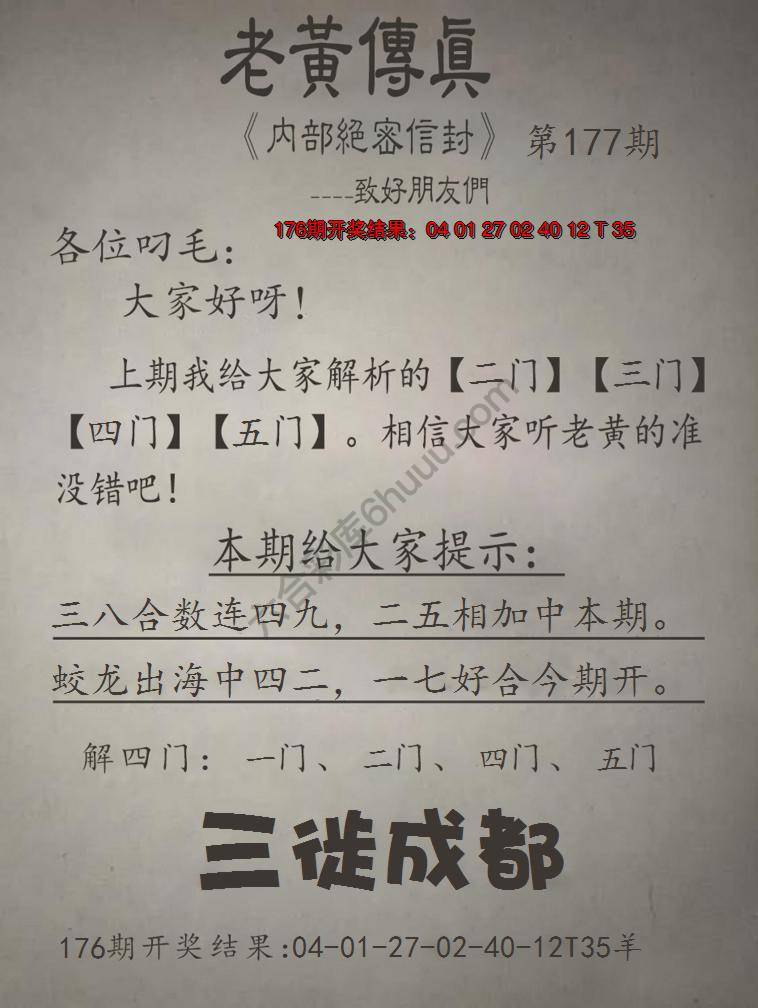 老黃傳眞
《内部絕密信封》 第177期
----致好朋友們
176期开奖结果：04 01 27 02 40 12 T 35
各位叼毛：
大家好呀！
上期我给大家解析的【二门】【三门】
【四门】【五门】。相信大家听老黄的准
没错吧！
本期给大家提示：
三八合数连四九，二五相加中本期。
蛟龙出海中四二，一七好合今期开。
解四门：一门、二门、四门、五门
三徙成都
176期开奖结果:04-01-27-02-40-12T35羊
六合彩库6huuu.com